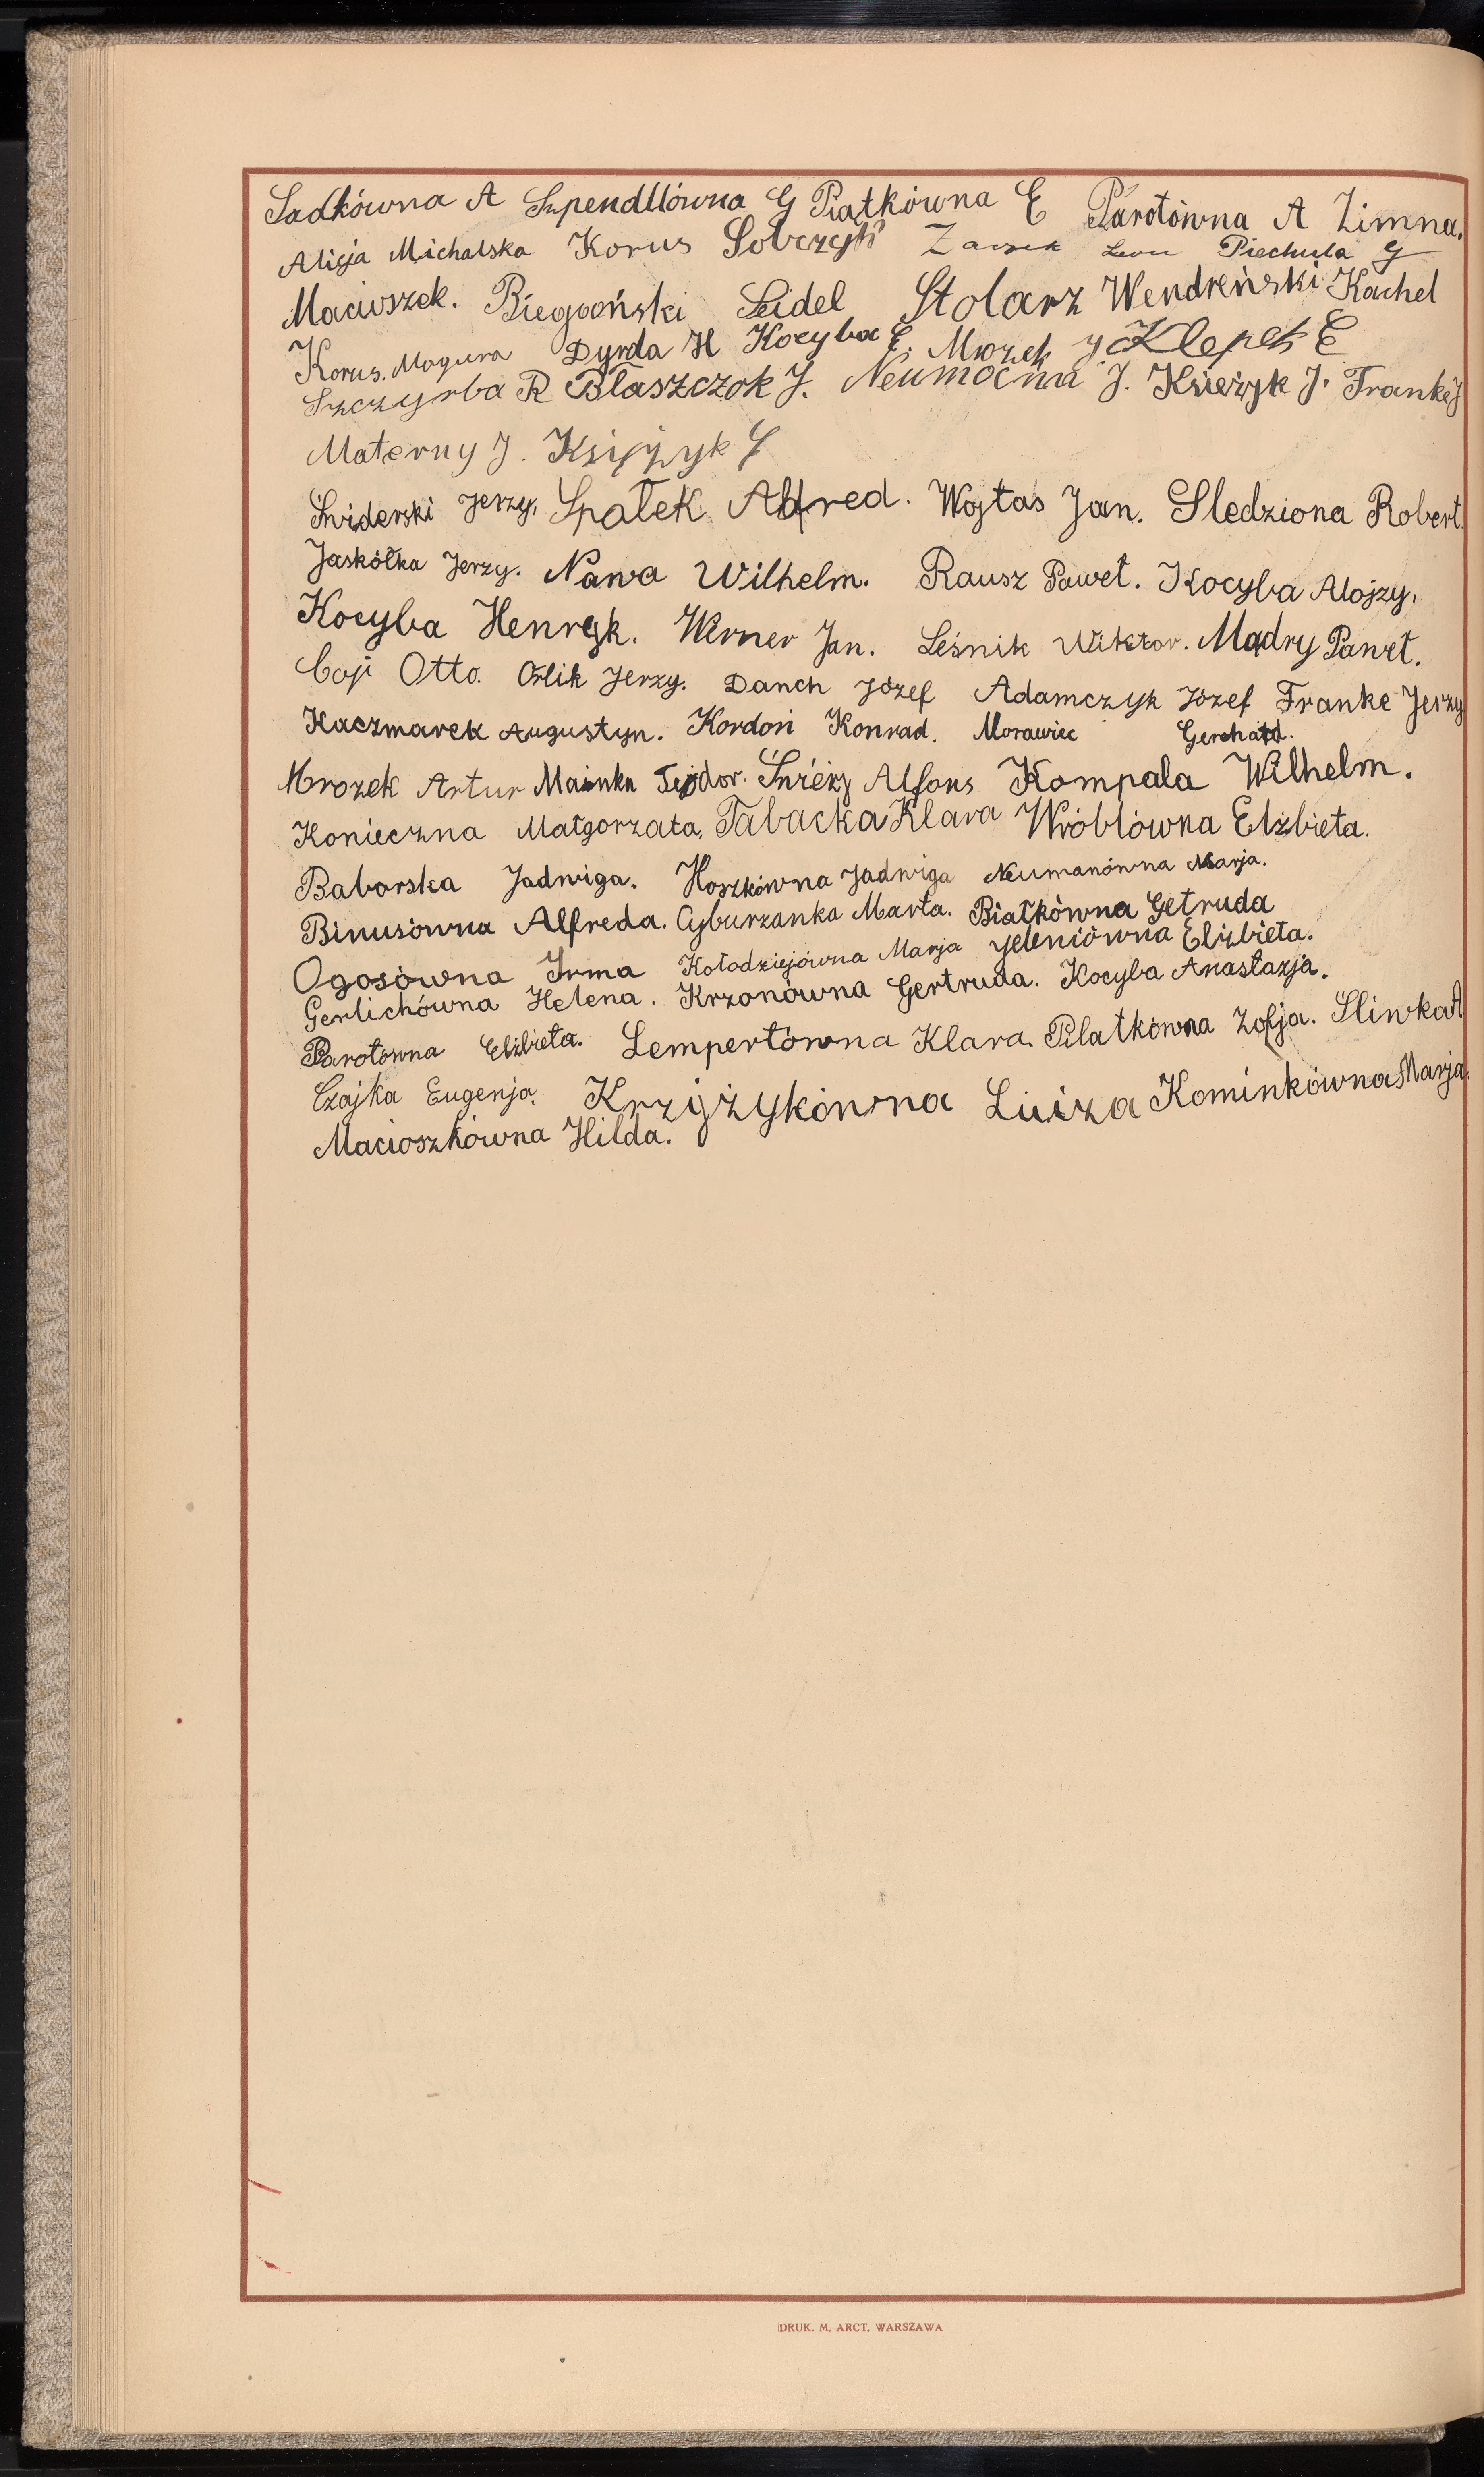 Sadkówna A Szpendlówna G Piątkówna E Parotówna A Zimna.
Alicja Michalska Korus Sobczyk Zarsek Leon Piechula G
Macioszek. Biegoński Seidel Stolarz Wendreński Kachel
Korus. Magiera Dyrda H Kocyba E. Mrozek J Klepek E
Szczyrba R Błaszczok J. Neumocna J. Księżyk J. Franke J
Materny J. Księżyk G
Świderski Jerzy. Spałek Alfred. Wojtas Jan. Sledziona Robert.
Jaskółka Jerzy. Nawa Wilhelm. Rausz Paweł. Kocyba Alojzy.
Kocyba Henryk. Werner Jan. Leśnik Wiktor. Mądry Paweł.
Coji Otto. Orlik Jerzy. Danch Józef Adamczyk Józef Franke Jerzy
Kaczmarek Augustyn. Kordoń Konrad. Morawiec Gerchard.
Mrozek Artur Mainka Teodor. Śnieży Alfons Kompala Wilhelm.
Konieczna Małgorzata, Tabacka Klara Wróblówna Elżbieta.
Baborska Jadwiga. Hoszkówna Jadwiga Neumanówna Marja.
Binusówna Alfreda. Cyburzanka Marta. Białkówna Getruda
Ogosówna Irma Kołodziejówna Marja Jeleniówna Elżbieta.
Gerlichówna Helena. Krzonówna Gertruda. Kocyba Anastazja.
Parotówna Elżbieta. Lempertówna Klara. Pilatkówna Zofja. Sliwka A
Czajka Eugenja. Krzyżykówna Luiza Kominkówna Marja.
Macioszkówna Hilda.
DRUK. M. ARCT, WARSZAWA